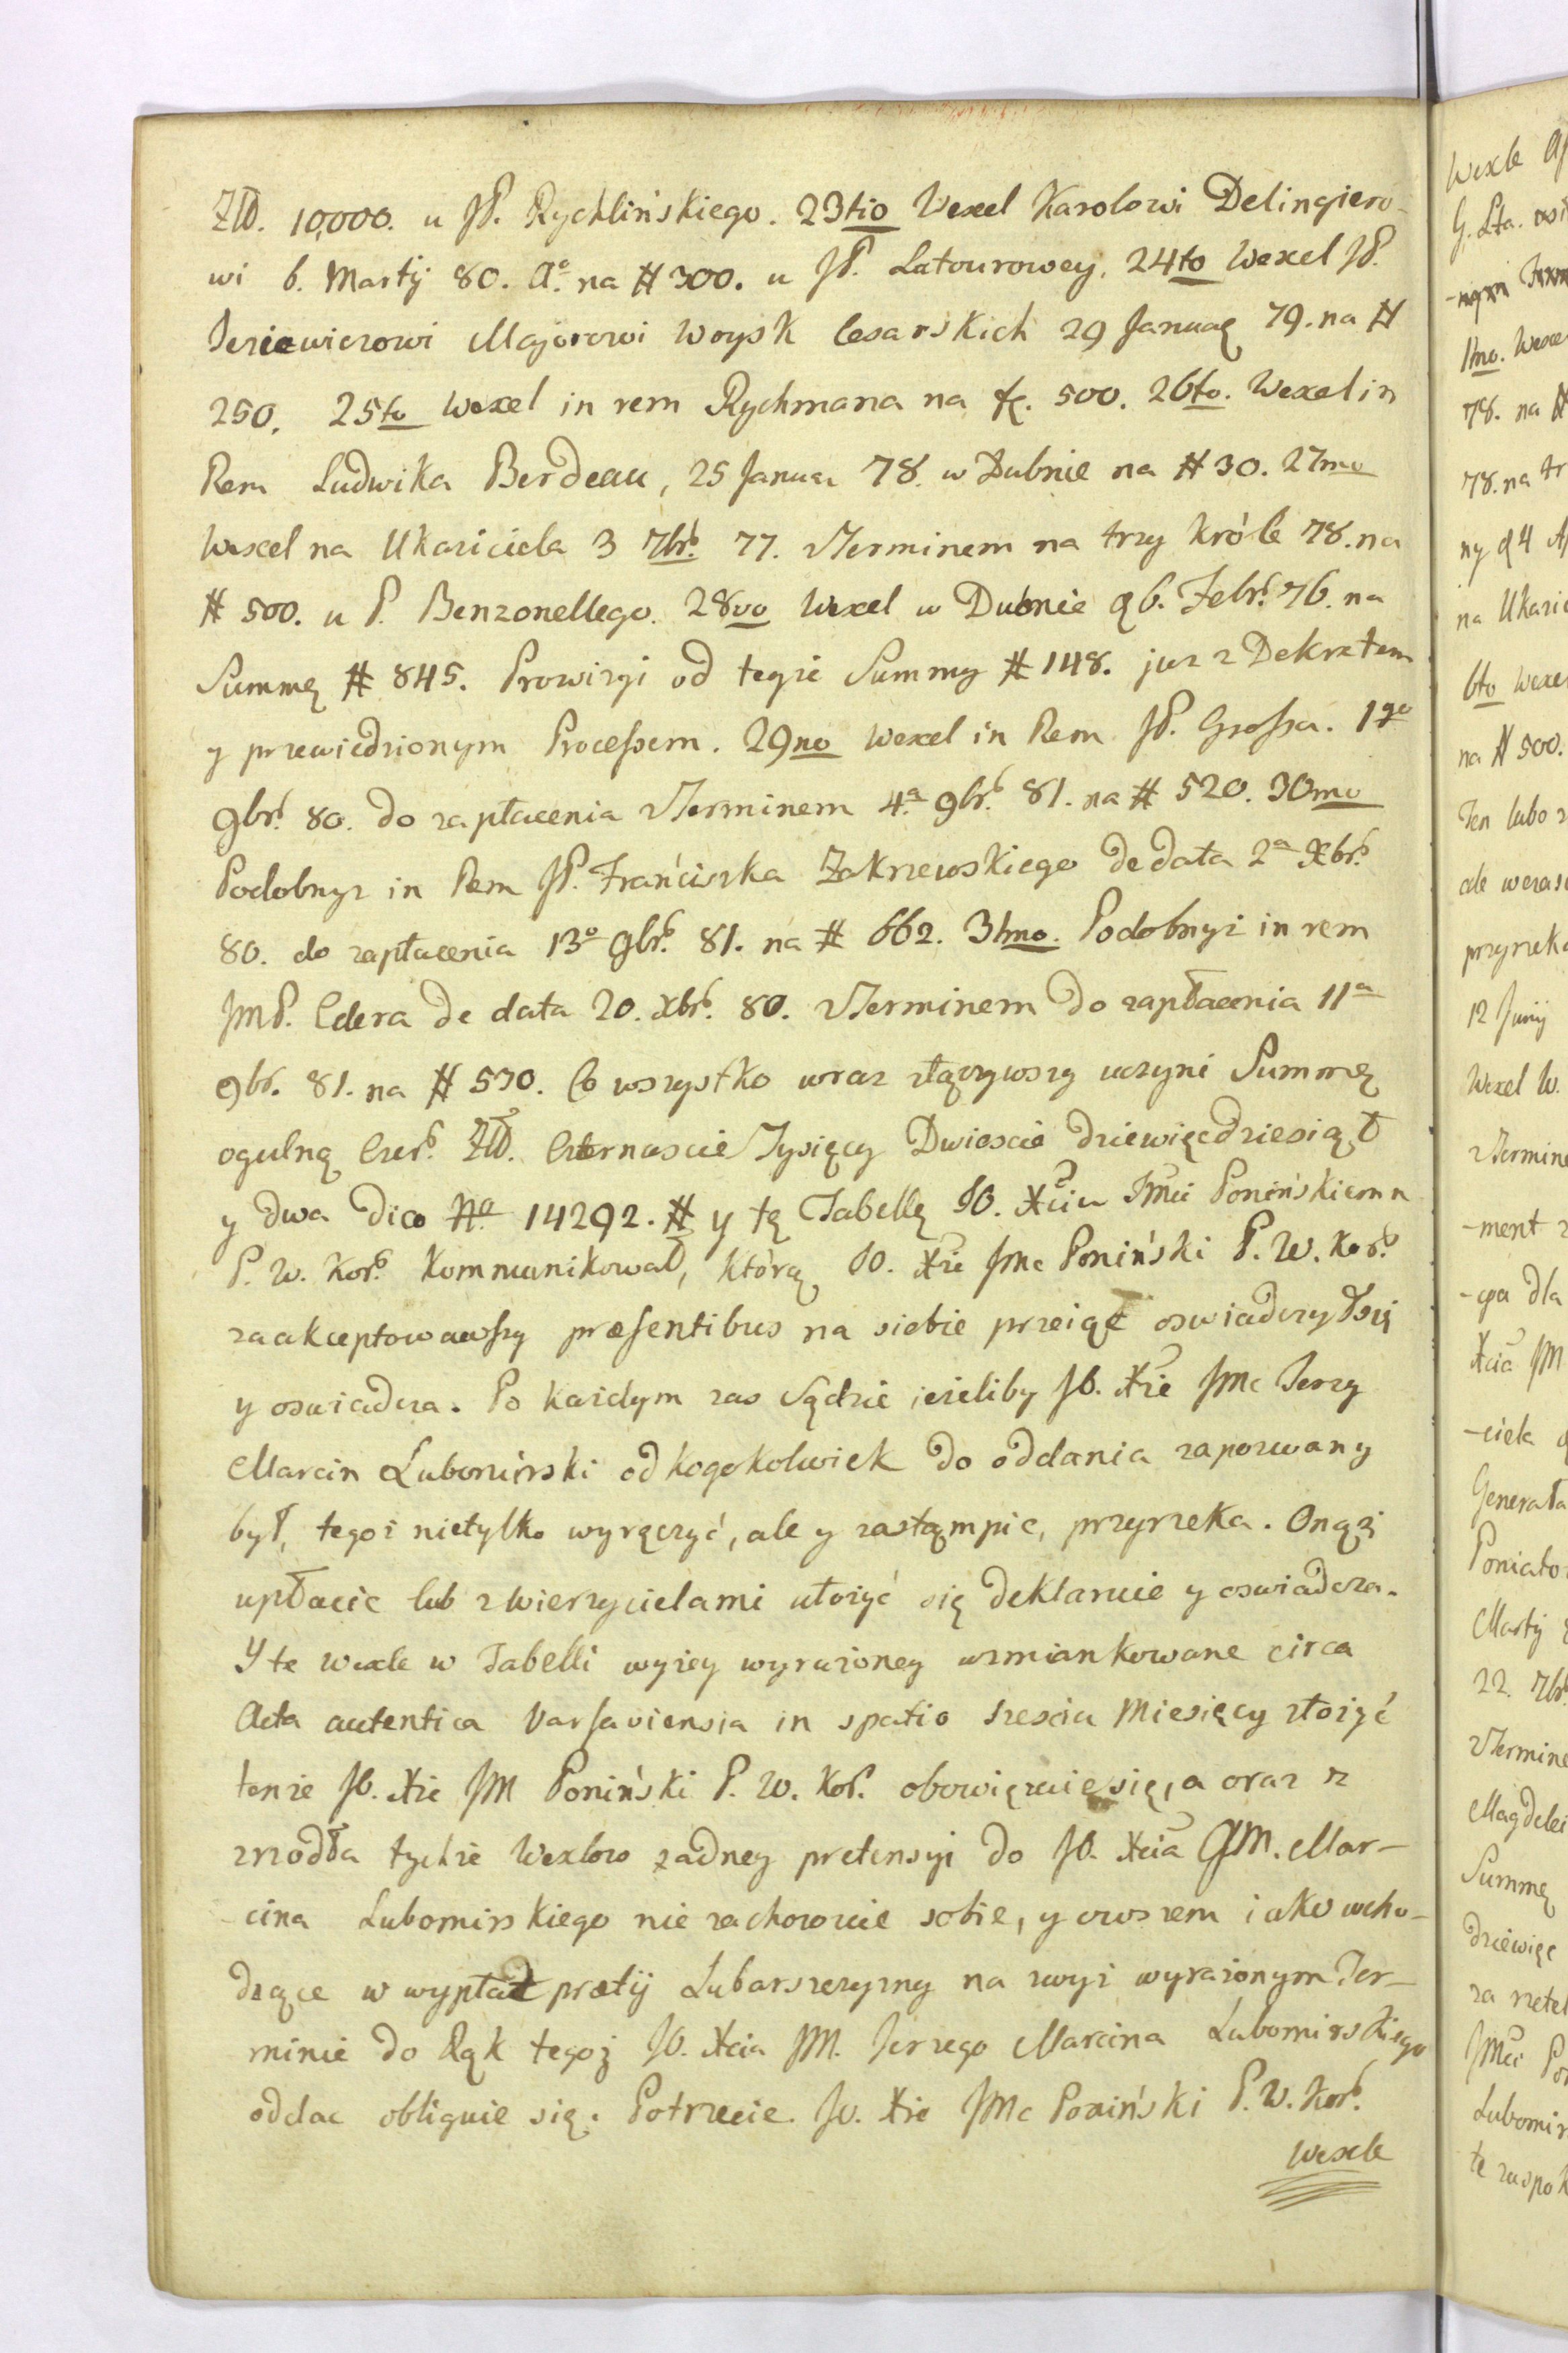 Złł. 10,000. u JP. Rychlińskiego. 23tio Wexel Karolowi Delingiero-
wi 6. Martij 80. Ao. na # 300. u JP. Latourowey, 24to Wexel JP.
Jeziewiczowi Majorowi Woysk Cesarskich 29 Januar 79. na #
250. 25to Wexel in rem Rychmana na 500. 26to. Wexel in
Rem Ludwika Berdeau, 25 Januar 78. w Dubnie na # 30. 27mo
Wexel na Ukaziciela 3 7br. 77. z Terminem na trzy króle 78. na
# 500. u P. Benzonellego. 28vo Wexel w Dubnie d. 6. Febr. 76. na
Summę # 845. Prowizyi od teyże Summy # 148. juz z Dekretem
y przewiedzionym Processem. 29no Wexel in Rem JP. Grossa. 12a
9br. 80. do zapłacenia z Terminem 4a 9br. 81. na # 520. 30mo
Podobnyz in Rem JP. Franciszka Zakrzewskiego de data 2a Xbr.
80. do zapłacenia 13o 9br. 81. na # 662. 31mo. Podobnyż in rem
JmP. Edera de data 20. Xbr. 80. z Terminem do zapłacenia 11a
9br. 81. na # 530. Co wszystko wraz złączywszy uczyni Summę
ogulną Czer. Złł. Czternascie Tysięcy Dwiescie dziewięcdziesiąt
y dwa dico No 14292. # y tę Tabellę JO. Xciu Jmci Ponińskiemu
P. W. Kor. Kommunikował, którą JO. Xże Jmc Poniński P. W. Kor.
zaakceptowawszy præsentibus na siebie przeiąć oswiadczył się
y oswiadcza. Po każdym zas Sądzie ieżeliby JO. Xże Jmc Jerzy
Marcin Lubomirski od kogokolwiek do oddania zapozwany
był, tegoż nietylko wyręczyć, ale y zastąmpic, przyrzeka. Onąż
upłacic lub z wierzycielami ułożyć się deklaruie y oswiadcza.
Y te wexle w Tabelli wyżey wyrażoney wzmiankowane circa
Acta autentica Varsaviensia in spatio szesciu Miesięcy złożyć
tenże JO. Xże JM Poniński P. W. Kor. obowięzuie się, a oraz z
zrzodła tychże Wexlow zadney pretensyi do JO. Xcia JM. Mar-
cina Lubomirskiego nie zachowuie sobie, y owszem iako wcho-
dzące w wypłat prætij Lubarszczyzny na zwyż wyrażonym Ter-
minie do Rąk tegoż JO. Xcia JM. Jerzego Marcina Lubomirskiego
oddac obliguie się. Potrzecie. JO. Xże JMc Poniński P. W. Kor.
Wexle
Wexle
G. Lta.
1mo. Wexel
78. na #
78. na
ny d 4
na Ukazic
6to Wexel
na # 500.
Ten lubo z
ale wczas
przyrzeka
12 Junij
Wexel W.
z Termine
-ment z
-cya dla
Xcia JM
-ciela
Generała
Poniato
Martij
22. 7br
z Termine
Magdele
Summę
dziewięc
za rzetel
JMci Pon
Lubomir
te zaspok